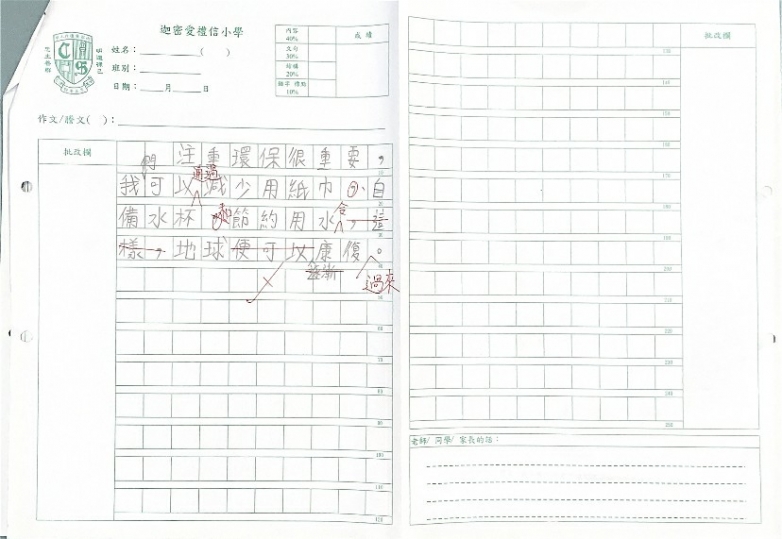 迦密愛禮信小學
姓名：__________(    )
班別：__________
日期：____月____日
內容 40%
文句 30%
結構 20%
錯字 標點 10%
成績
作文/謄文(  )：
批改欄
注重環保很重要，
們
通過
我可以減少用紙巾、自
備水杯和節約用水，這
令
樣，地球便可以康復。
逐漸
過來
批改欄
老師/ 同學/ 家長的話：